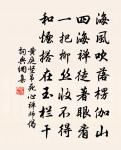 海風吹落楞伽山
四海禪徒著眼看
一把柳絲收不得
和煙搭在玉欄干
黃庭堅弔死心禪師偈
詞典網集